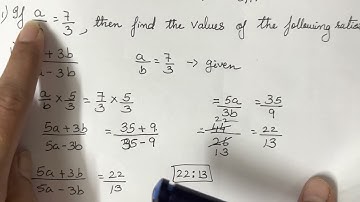 1) If a/ = 7/3, then find the values of the following ratio
a + 3b
5a - 3b
a/b = 7/3 → given
a/b × 5/3 = 7/3 × 5/3
= 5a/3b = 35/9
5a + 3b / 5a - 3b = 35 + 9 / 35 - 9
= 44/26 = 22/13
22
13
5a + 3b / 5a - 3b = 22/13
22:13